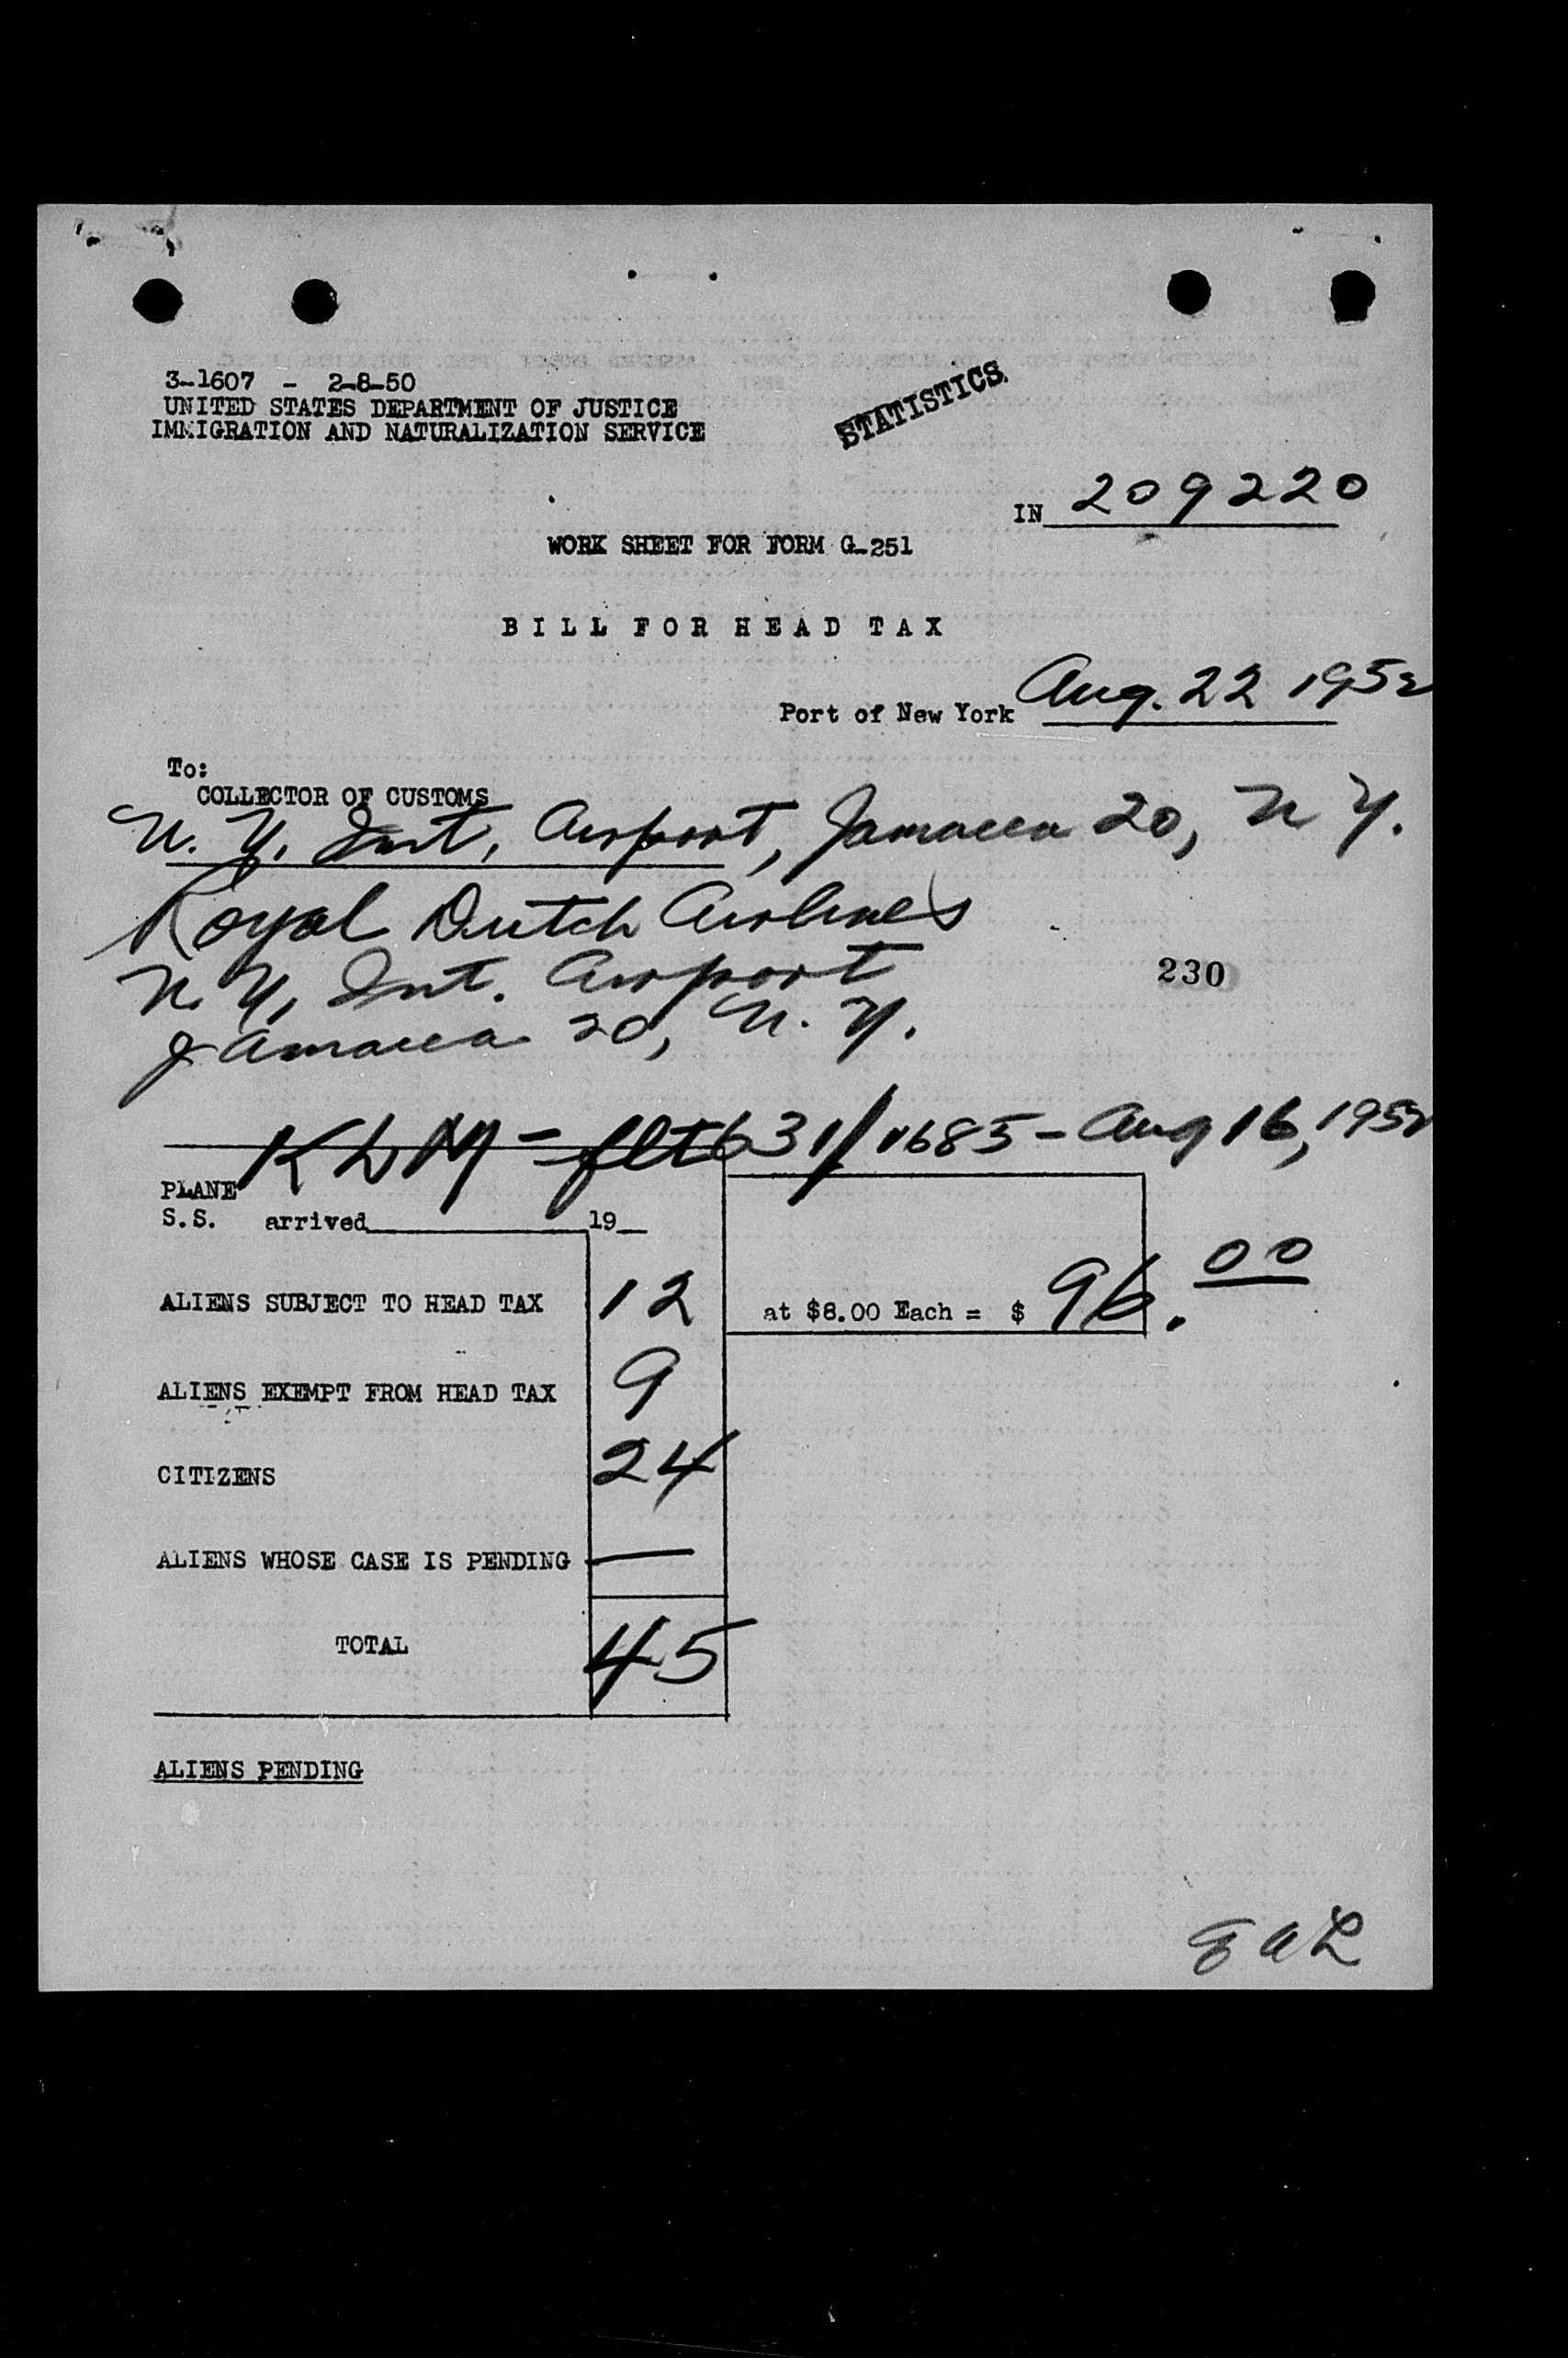 3-1607 - 2-8-50
UNITED STATES DEPARTMENT OF JUSTICE
IMMIGRATION AND NATURALIZATION SERVICE
STATISTICS
IN 209220
WORK SHEET FOR FORM G-251
BILL FOR HEAD TAX
Port of New York Aug. 22 1952
To:
COLLECTOR OF CUSTOMS
N. Y. Int. Airport, Jamaica 20, N Y.
Royal Dutch Airlines
N. Y. Int. Airport
230
Jamaica 20, N. Y.
KLM - flt 631/1685 - Aug 16, 1952
PLANE
S.S. arrived 19
ALIENS SUBJECT TO HEAD TAX 12 at $8.00 Each = $ 96.00
ALIENS EXEMPT FROM HEAD TAX 9
CITIZENS 24
ALIENS WHOSE CASE IS PENDING —
TOTAL 45
ALIENS PENDING
EAL